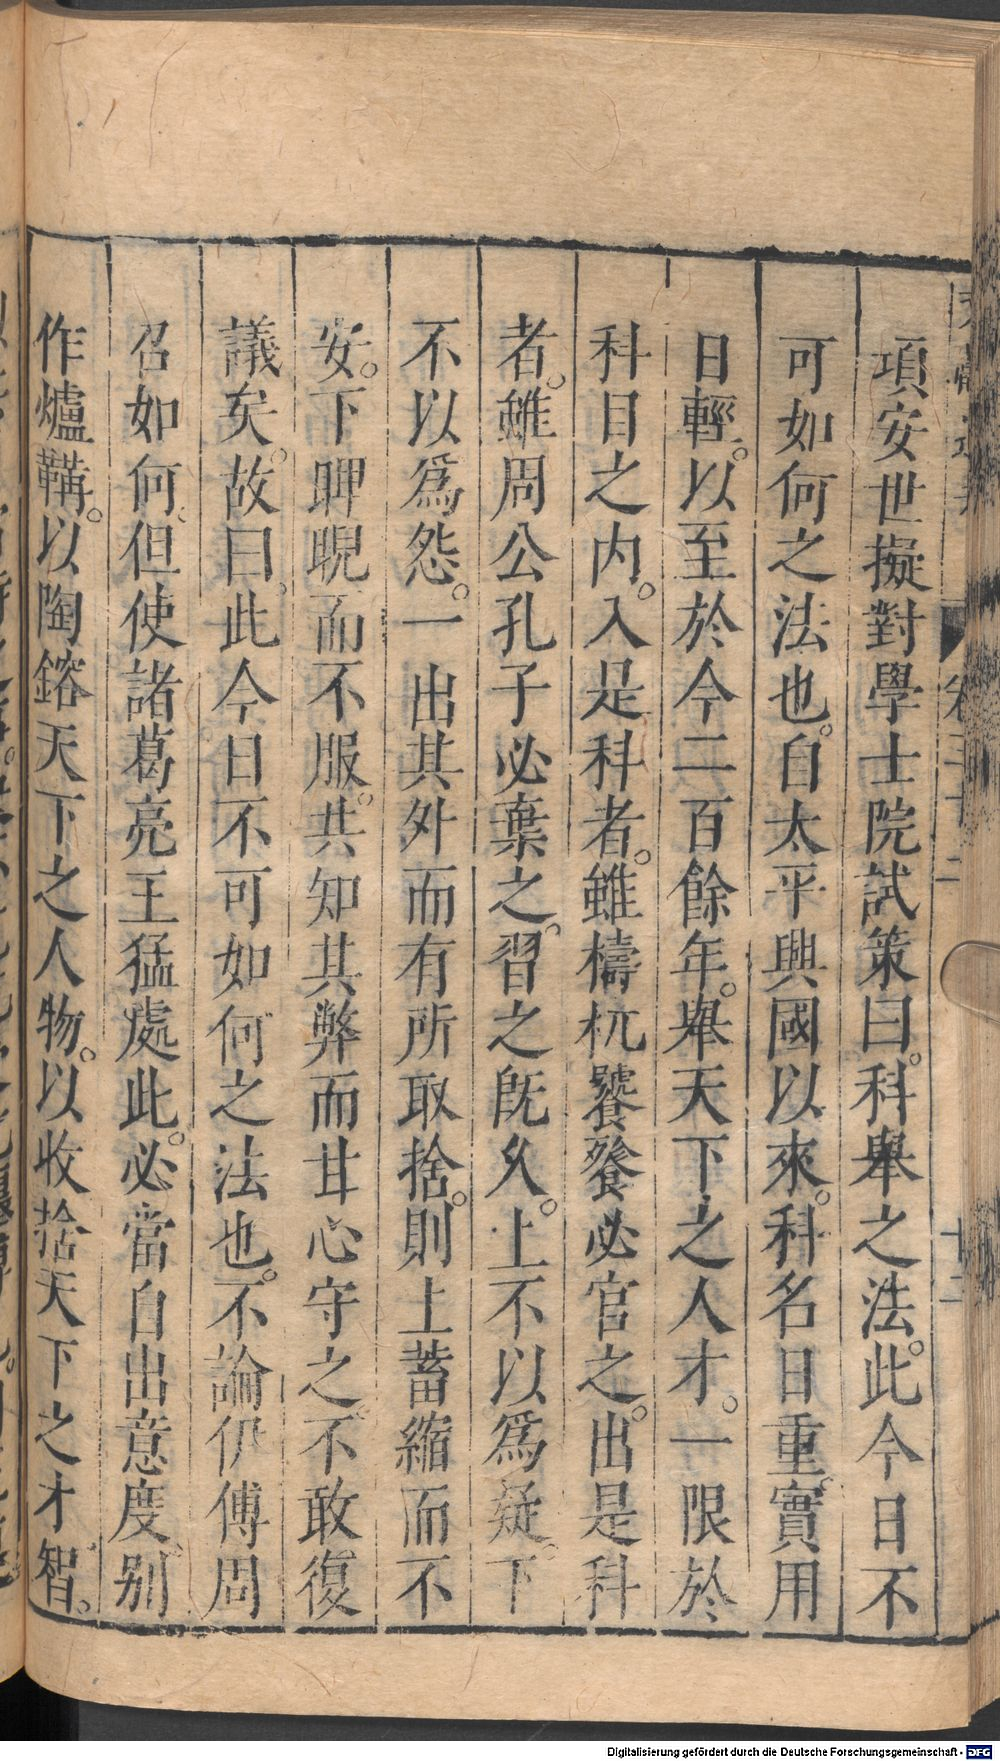 項安世擬對學士院試策曰。科舉之法。此今日不
可如何之法也。自太平興國以來。科名日重。實用
日輕。以至於今二百餘年。舉天下之人才。一限於
科目之内。入是科者。雖檮杌饕餮必官之。出是科
者。雖周公孔子必棄之。習之既久。上不以爲疑。下
不以爲怨。一出其外而有所取捨。則上蓄縮而不
安。下睥睨而不服。共知其弊而甘心守之。不敢復
議矣。故曰。此今日不可如何之法也。不論伊傅周
召如何。但使諸葛亮王猛處此。必當自出意度。别
作爐鞲。以陶鎔天下之人物。以收拾天下之才智。
Digitalisierung gefördert durch die Deutsche Forschungsgemeinschaft - DFG